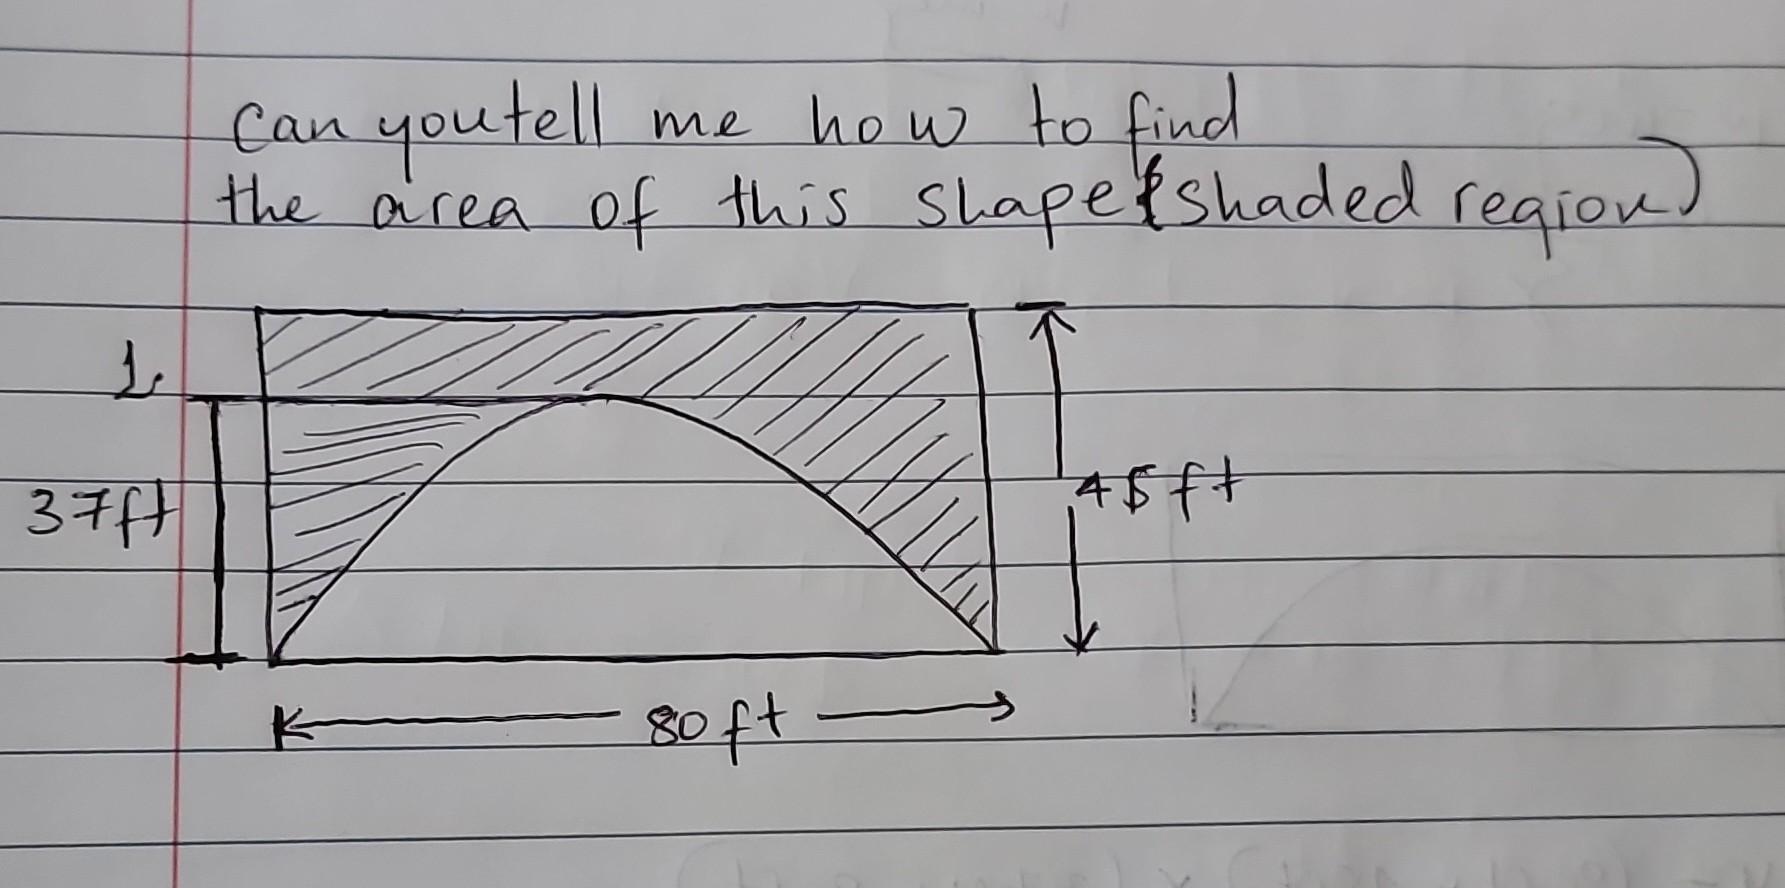 can you tell me how to find
the area of this shape (shaded region)
1.
37ft
45ft
80ft